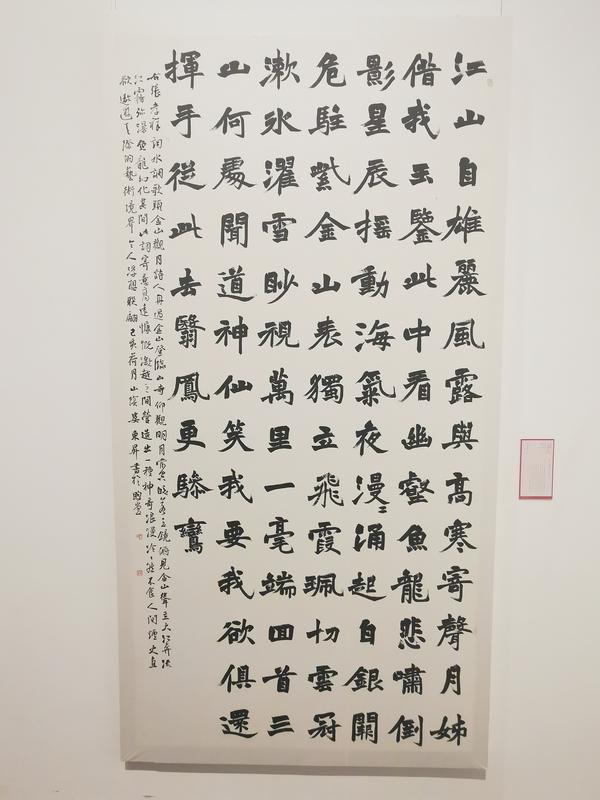 江山自雄麗風露與高寒寄聲月姊
借我玉鑒此中看幽壑魚龍悲嘯倒
影星辰搖動海氣夜漫〻涌起白銀闕
危駐紫金山表獨立飛霞珮切雲冠
漱冰濯雪眇視萬里一毫端回首三
山何處聞道神仙笑我要我欲俱還
揮手從此去翳鳳更驂鸞
右張孝祥詞水調歌頭金山觀月詩人舟過金山登臨山寺仰觀明月當空皎若玉鏡俯見金山聳立大江
江霧瀰漫魚龍幻化其間此詞寄意高遠慷慨激越之間營造出一種神奇浪漫冷〻然不食人間煙火直
欲遨遊天際的藝術境界令人浮想聯翩己亥荷月山陰婁東昇書於